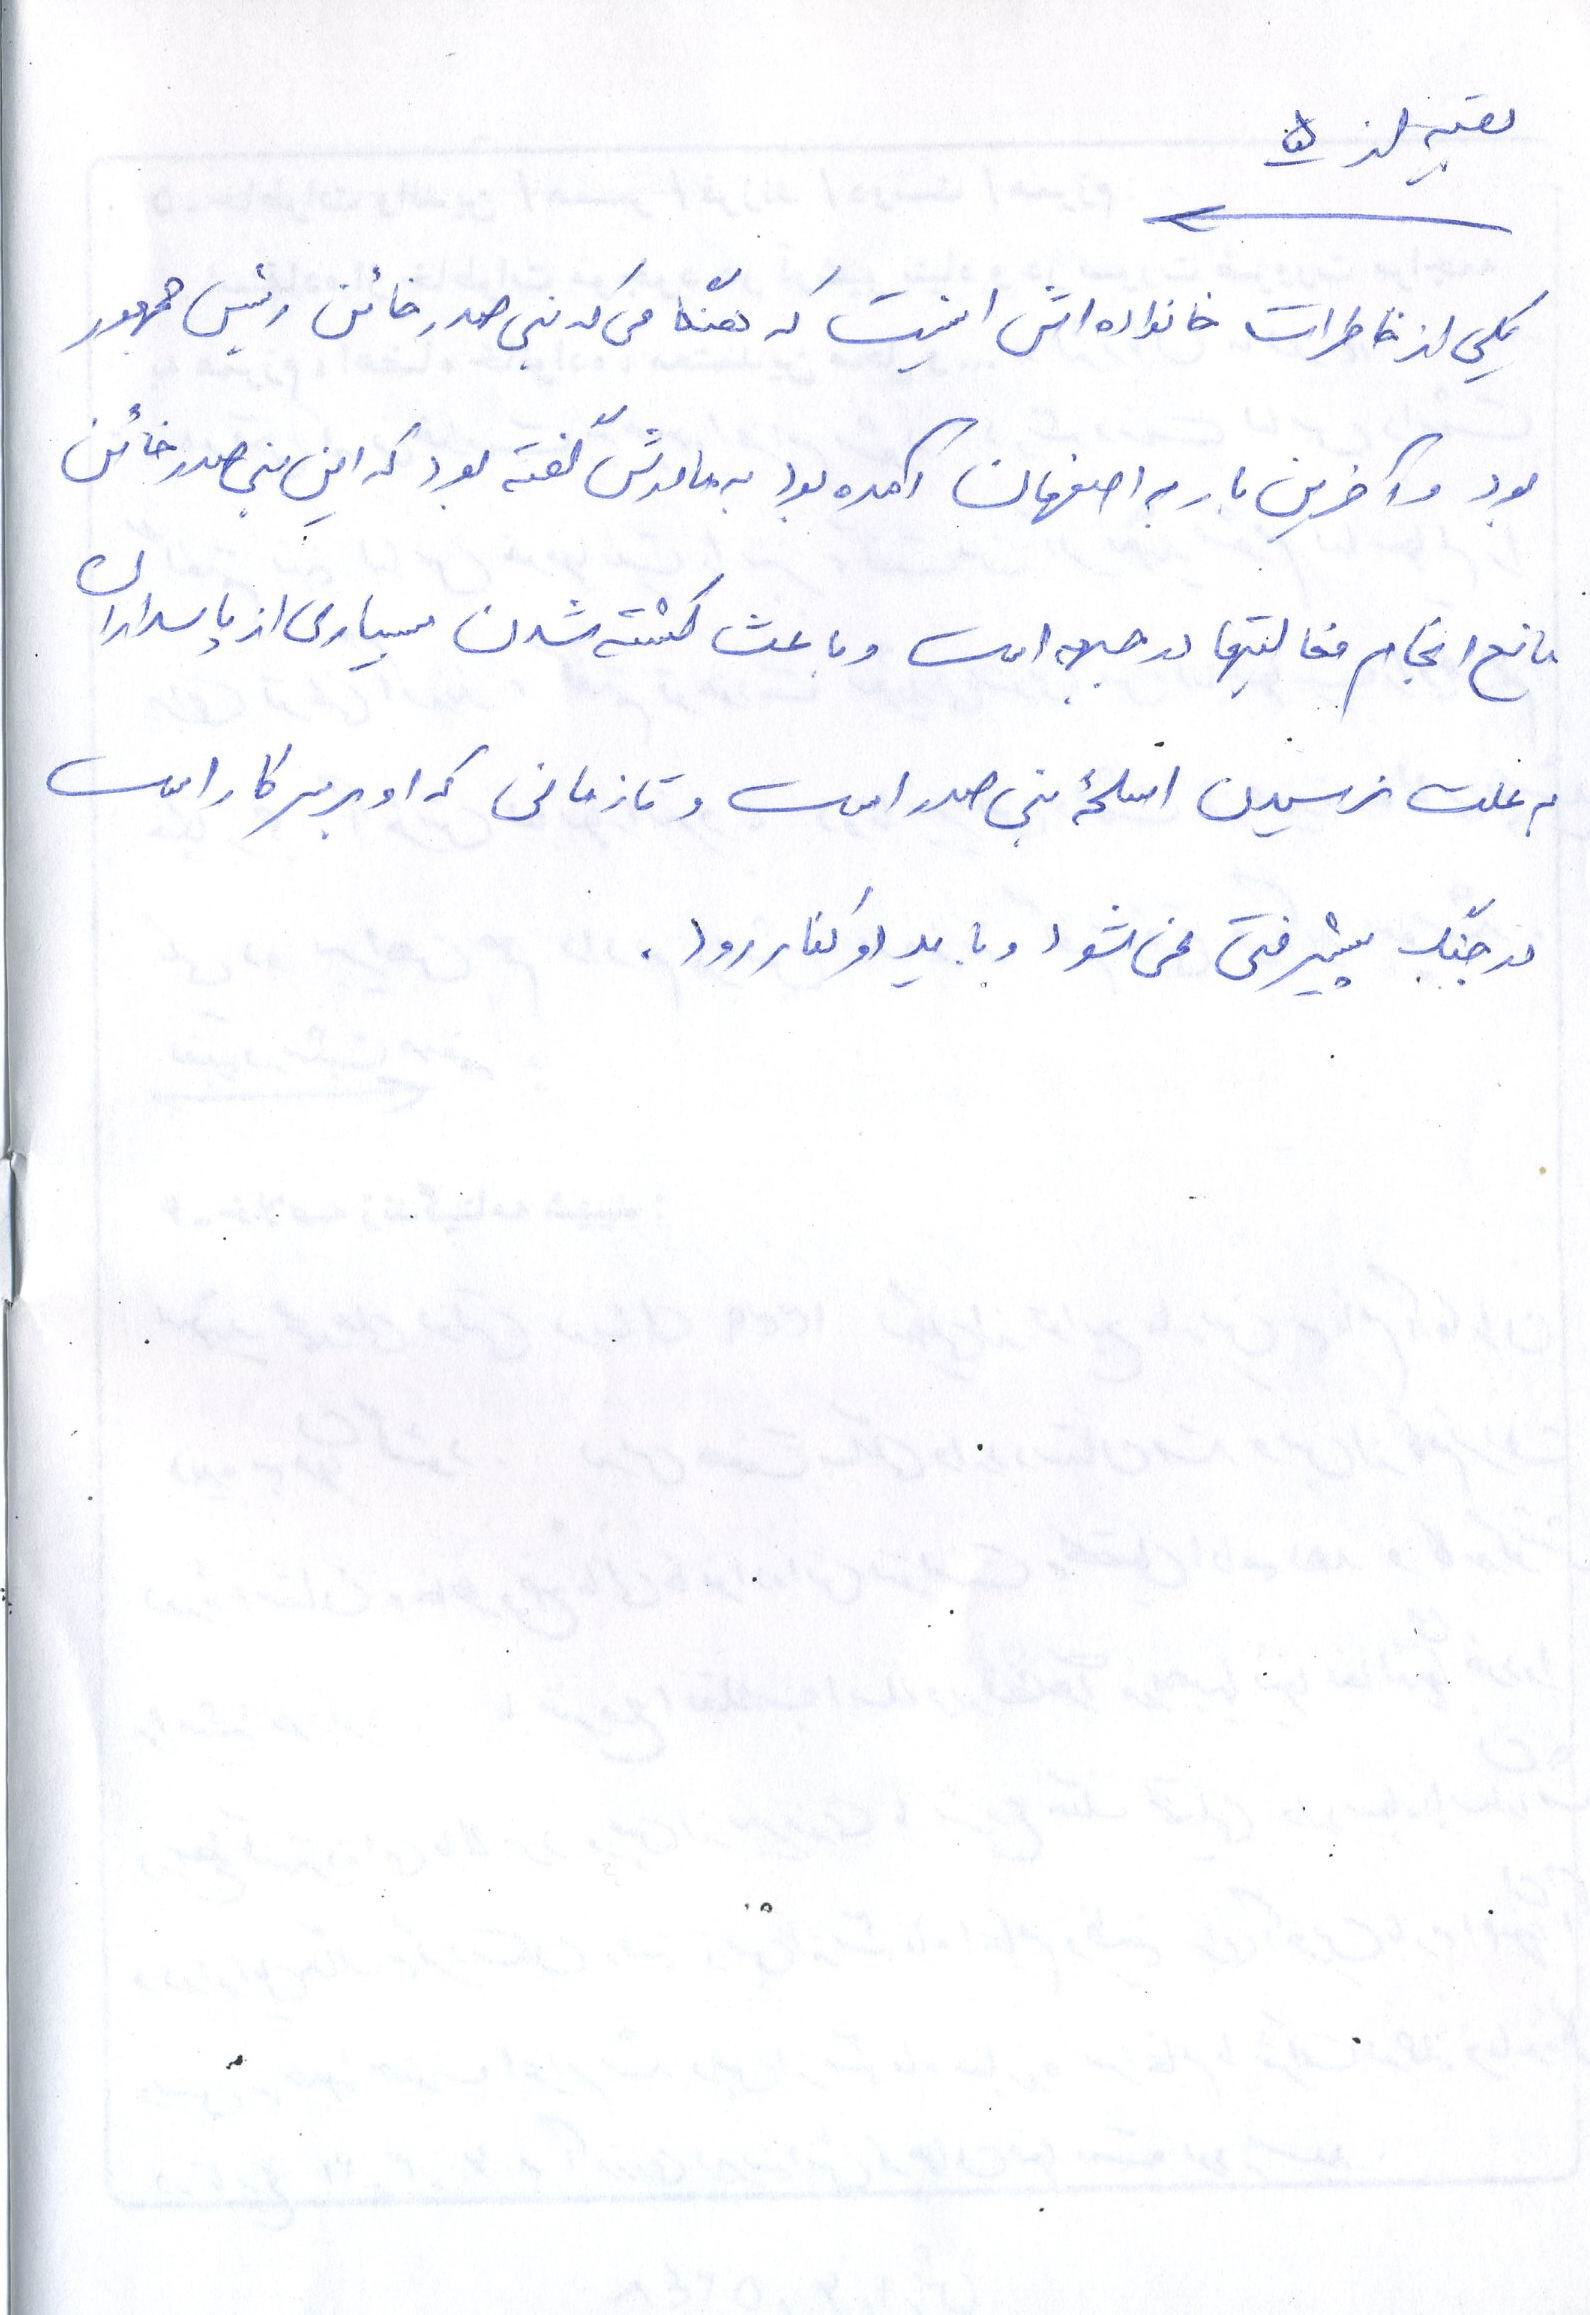 بقیه از ۵
یکی از خاطرات خانواده اش اینست که هنگامی که بنی صدر خائن رئیس جمهور
بود و آخرین بار به اصفهان آمده بود به مادرش گفته بود که این بنی صدر خائن
مانع انجام فعالیتها در جبهه است و باعث کشته شدن بسیاری از پاسداران
به علت نرسیدن اسلحهٔ بنی صدر است و تا زمانی که او بر سر کار است
در جنگ پیشرفتی نمی شود و باید او کنار رود .